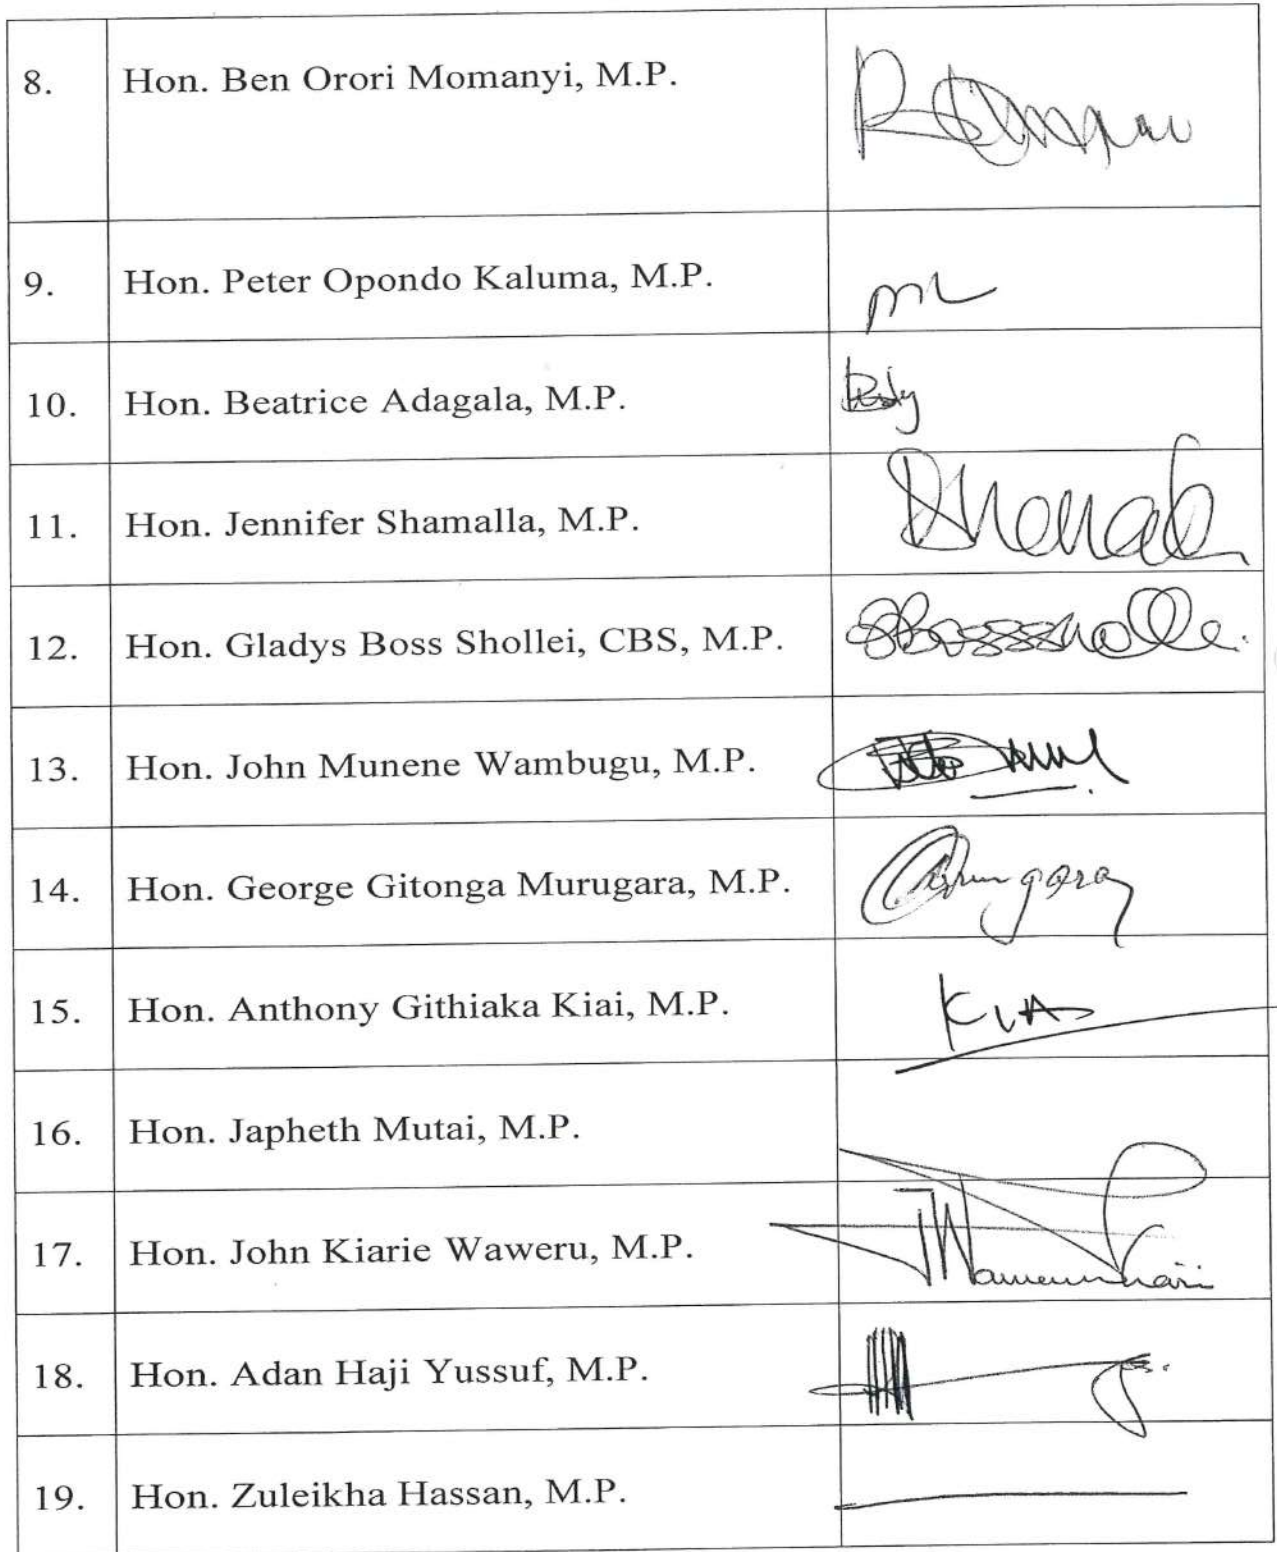 8. Hon. Ben Orori Momanyi, M.P.
9. Hon. Peter Opondo Kaluma, M.P.
10. Hon. Beatrice Adagala, M.P.
11. Hon. Jennifer Shamalla, M.P.
12. Hon. Gladys Boss Shollei, CBS, M.P.
13. Hon. John Munene Wambugu, M.P.
14. Hon. George Gitonga Murugara, M.P.
15. Hon. Anthony Githiaka Kiai, M.P.
16. Hon. Japheth Mutai, M.P.
17. Hon. John Kiarie Waweru, M.P.
18. Hon. Adan Haji Yussuf, M.P.
19. Hon. Zuleikha Hassan, M.P.